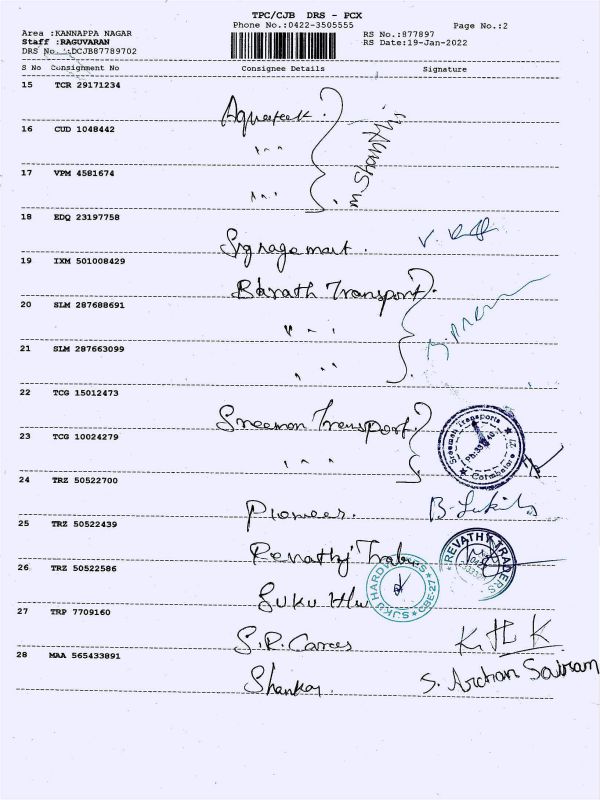 TPC/CJB DRS - PCX
Phone No.:0422-3505555
Page No.:2
Area :KANNAPPA NAGAR
RS No.:877897
Staff :RAGUVARAN
RS Date:19-Jan-2022
DRS No. :DCJB87789702
S No Consignment No Consignee Details Signature
15 TCR 29171234
Aquateek
16 CUD 1048442
17 VPM 4581674
18 EDQ 23197758
19 IXM 501008429
Barath Transport
20 SLM 287688691
21 SLM 287663099
22 TCG 15012473
Sreeman Transport
Sreemah Transports
23 TCG 10024279
Coimbatore
24 TRZ 50522700
Pioneer.
25 TRZ 50522439
Revathy
REVATHY TRADERS
26 TRZ 50522586
Suku H/w
SUKU HARD
CBE-27
27 TRP 7709160
S.R.
28 MAA 565433891
Shankar
S. Archan